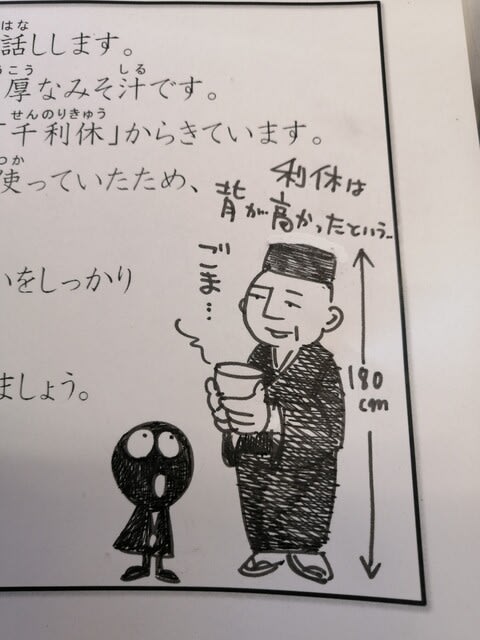 はな
話しします。
こう しる
厚なみそ汁です。
せんのりきゅう
「千利休」からきています。
つか
使っていたため、
いをしっかり
ましょう。
利休は
背が高かったという…
ごま…
180
cm